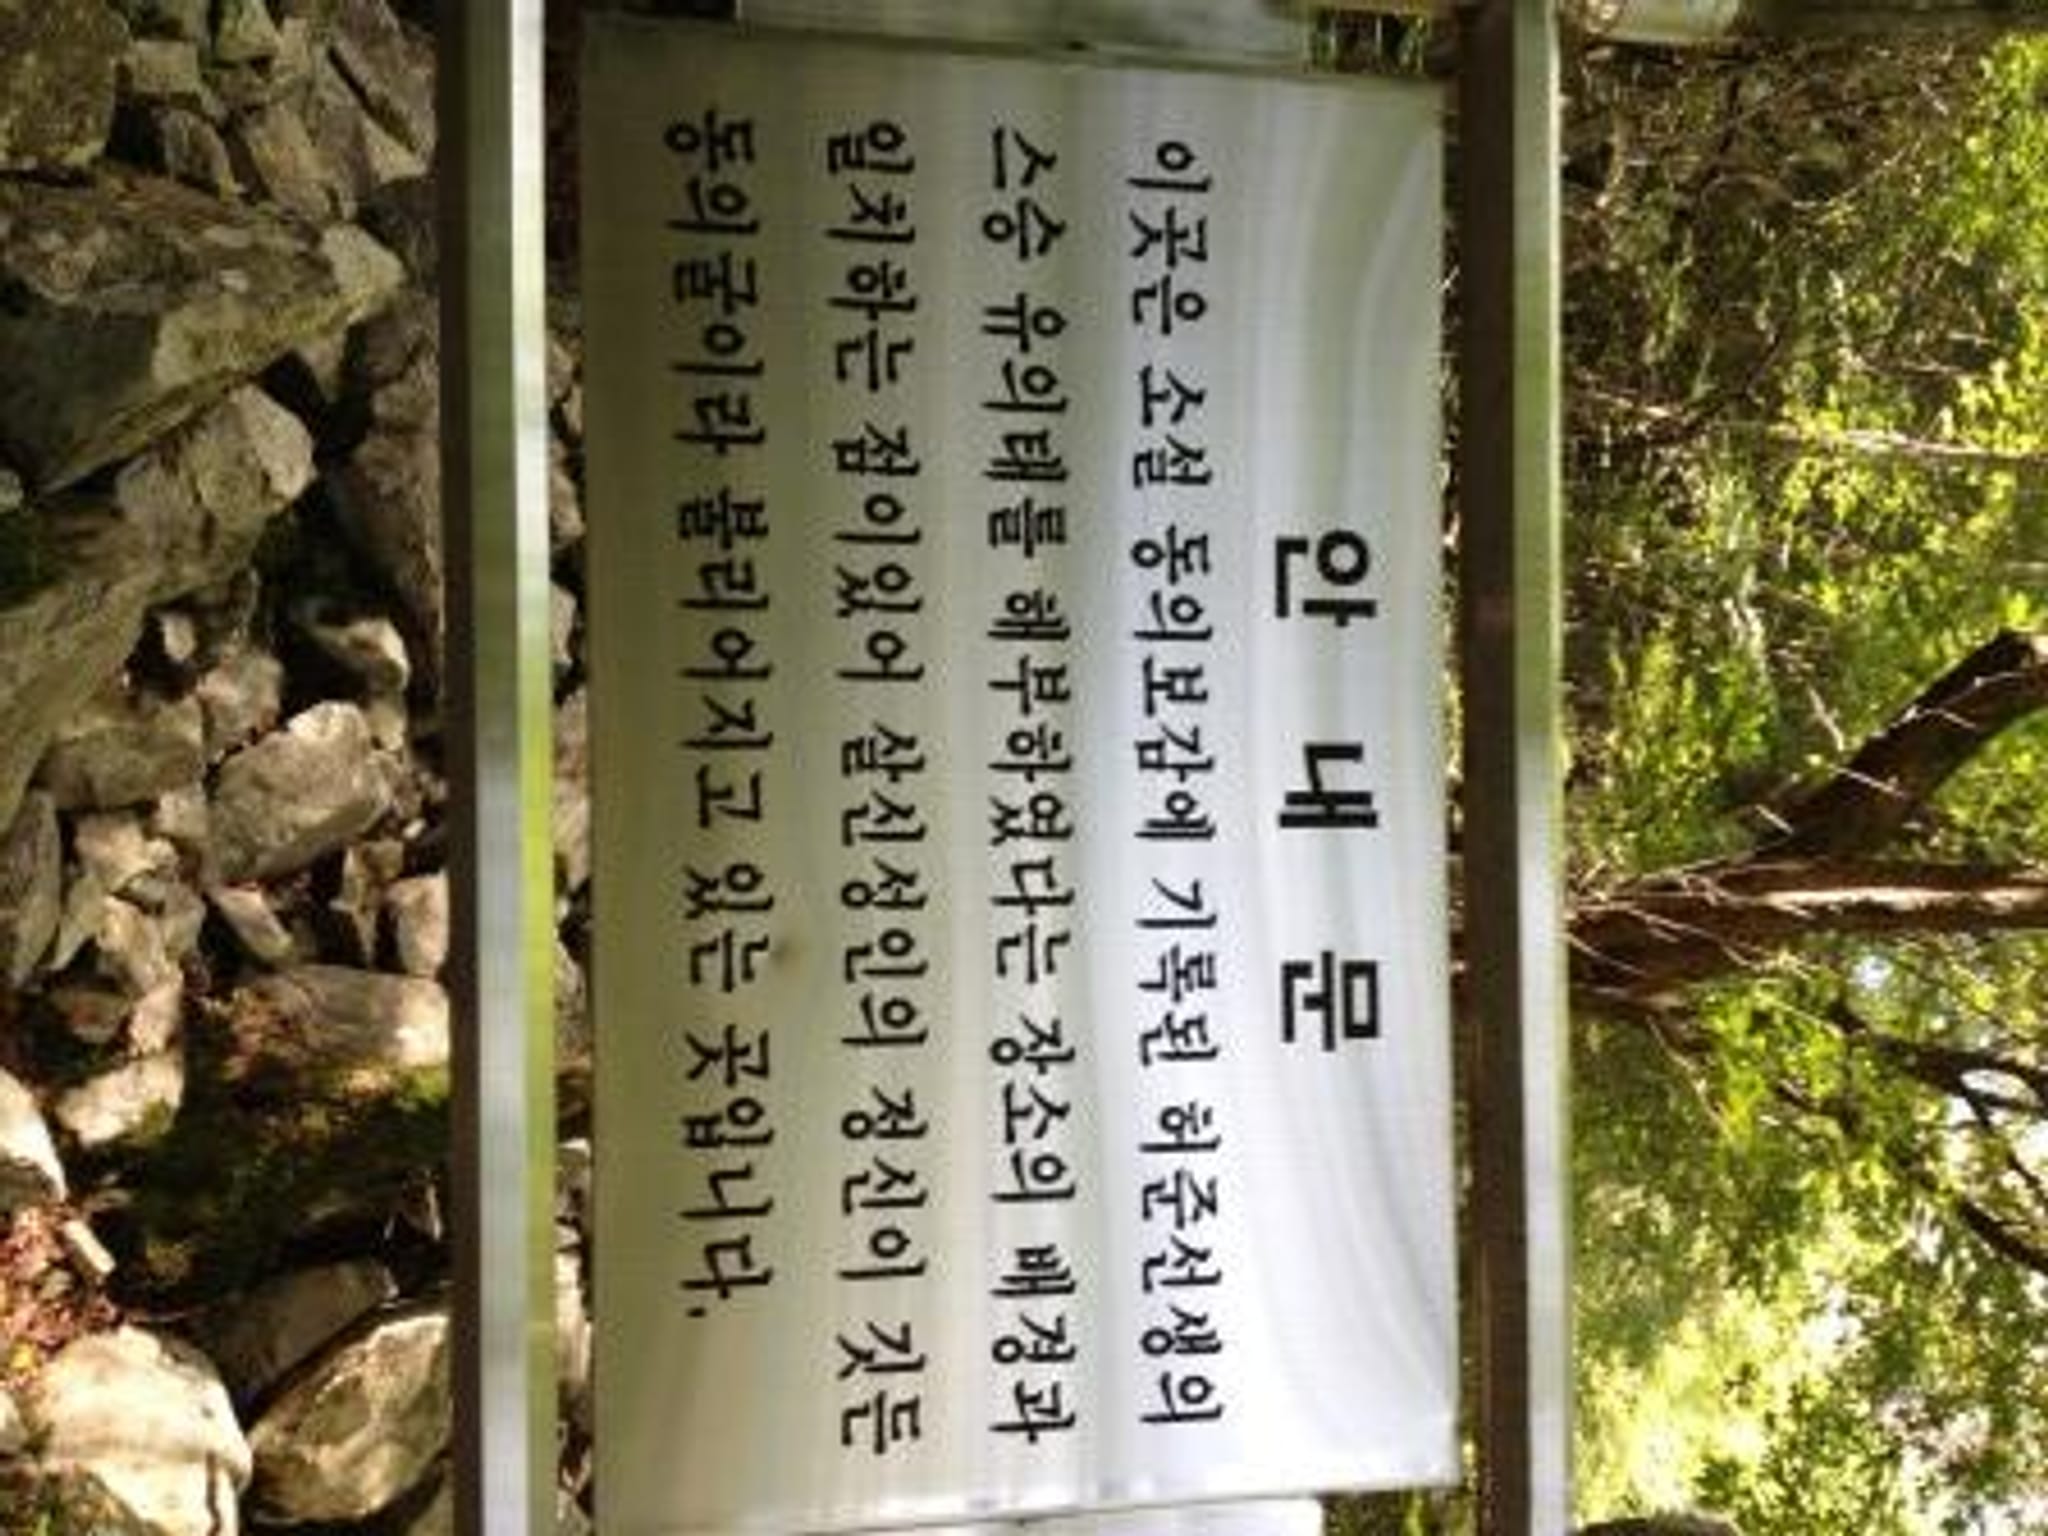 안 내 문
이곳은 소설 동의보감에 기록된 허준선생의
스승 유의태를 해부하였다는 장소의 배경과
일치하는 점이있어 살신성인의 정신이 깃든
동의굴이라 불리어지고 있는 곳입니다.